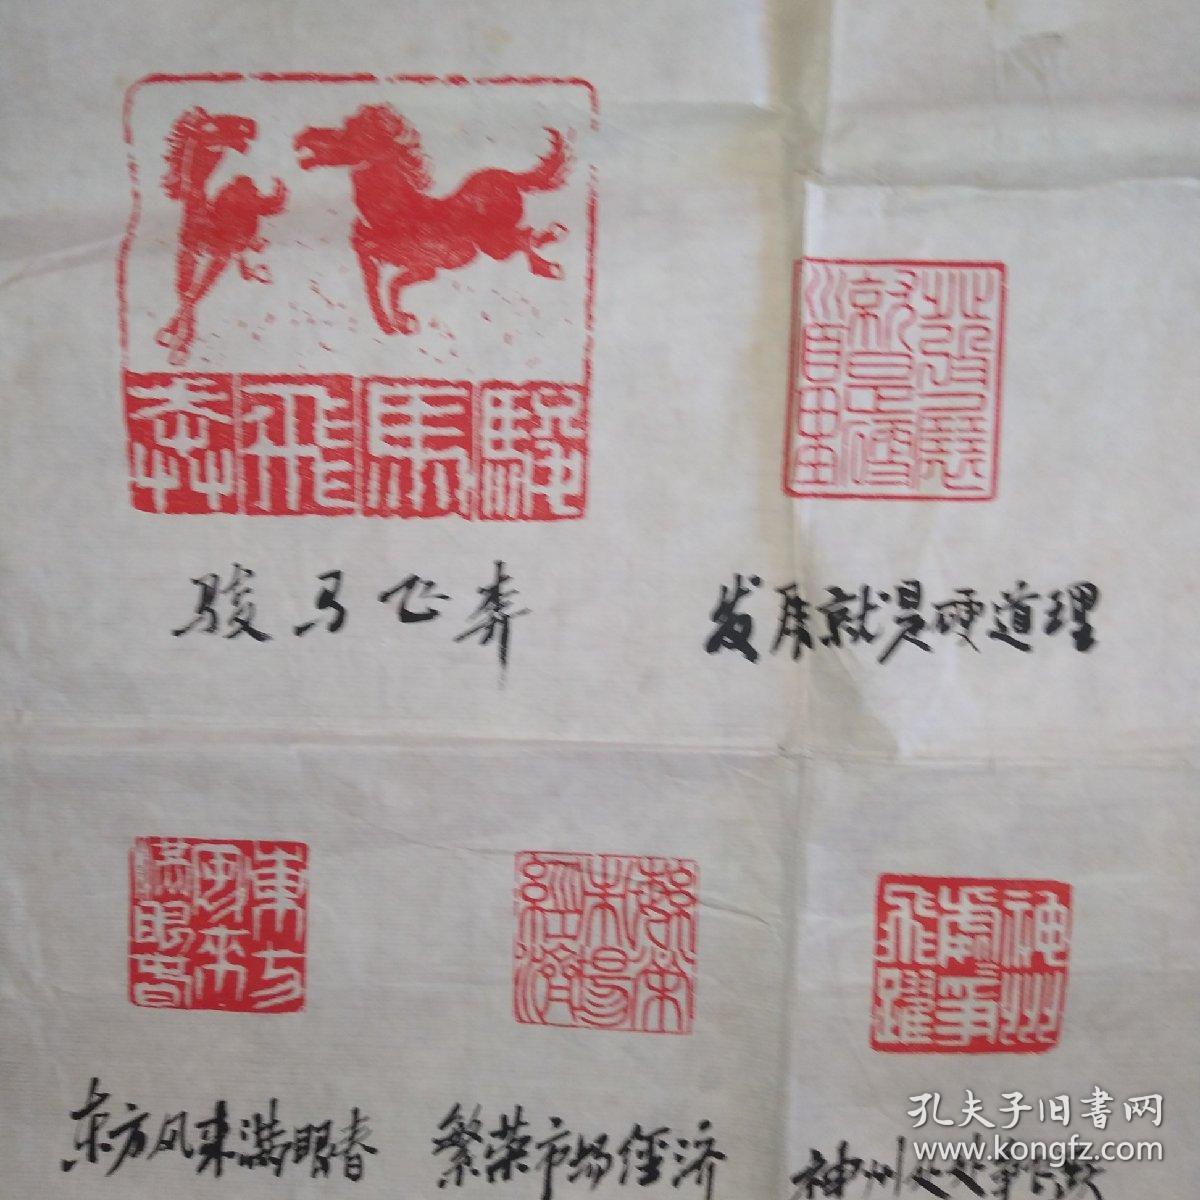 駿馬飛奔
發展就是硬道理
骏马飞奔
发展就是硬道理
東方風來滿眼春
繁荣市場經濟
神州處處爭飛躍
东方风来满眼春
繁荣市场经济
神州处处争飞跃
孔夫子旧书网
www.kongfz.com